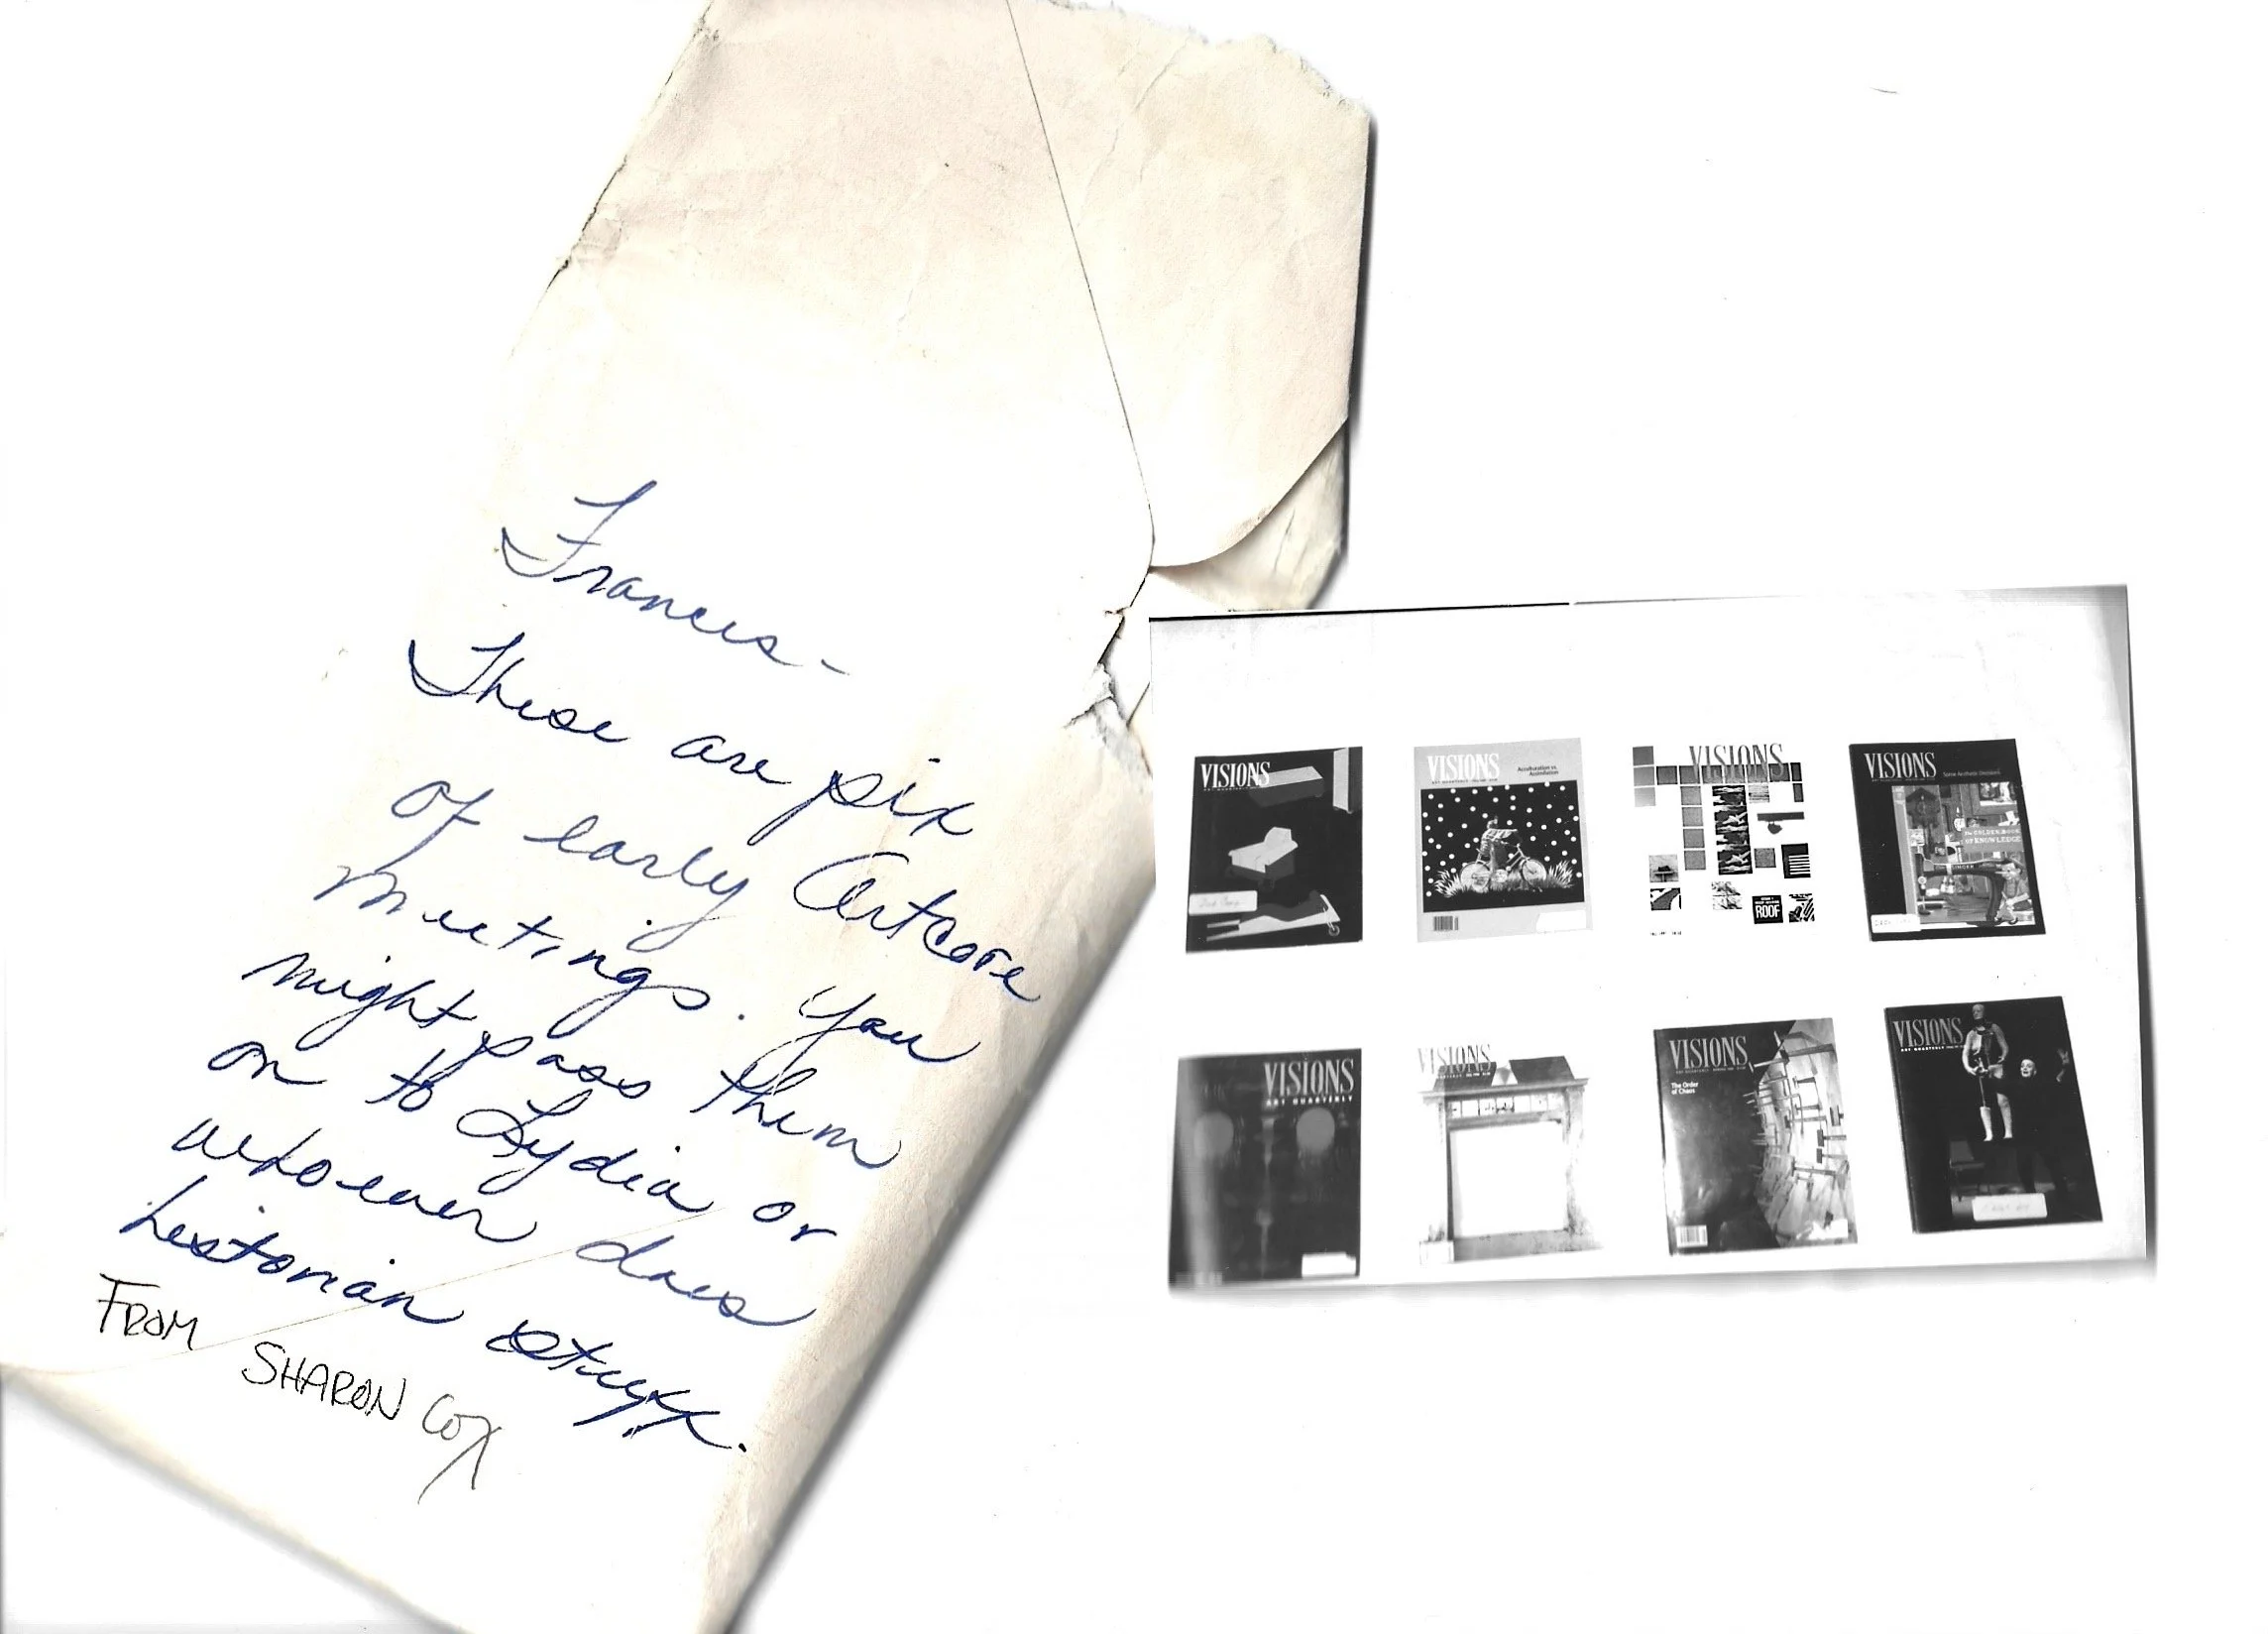 Frances-
These are pix
of early Artcore
meetings. You
might pass them
on to Lydia or
whoever does
historian stuff.
FROM SHARON COX
VISIONS
VISIONS
ART QUARTERLY
Acculturation vs.
Assimilation
VISIONS
ROOF
VISIONS
Some Aesthetic Decisions
The GOLDEN BOOK
OF KNOWLEDGE
SINGER
VISIONS
ART QUARTERLY
VISIONS
VISIONS
ART QUARTERLY
The Order
of Chaos
VISIONS
ART QUARTERLY